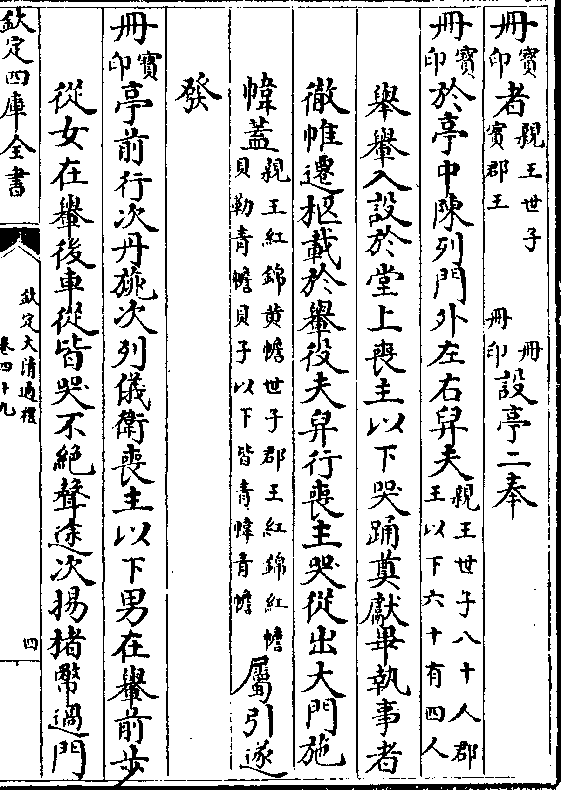 冊寶印者親王世子冊寶郡王冊印設亭二奉
冊寶印於亭中陳列門外左右舁夫親王世子八十人郡王以下六十有四人
舉轝入設於堂上喪主以下哭踊奠獻畢執事者
徹帷遷柩載於轝役夫舁行喪主哭從出大門施
幃蓋親王紅錦黄幨世子郡王紅錦紅幨貝勒青幨貝子以下皆青幃青幨屬引遂
發
冊寶印亭前行次丹旐次列儀衛喪主以下男在轝前步
從女在轝後車從皆哭不絶聲途次揚楮幣過門
欽定四庫全書
欽定大清通禮
卷四十九
四